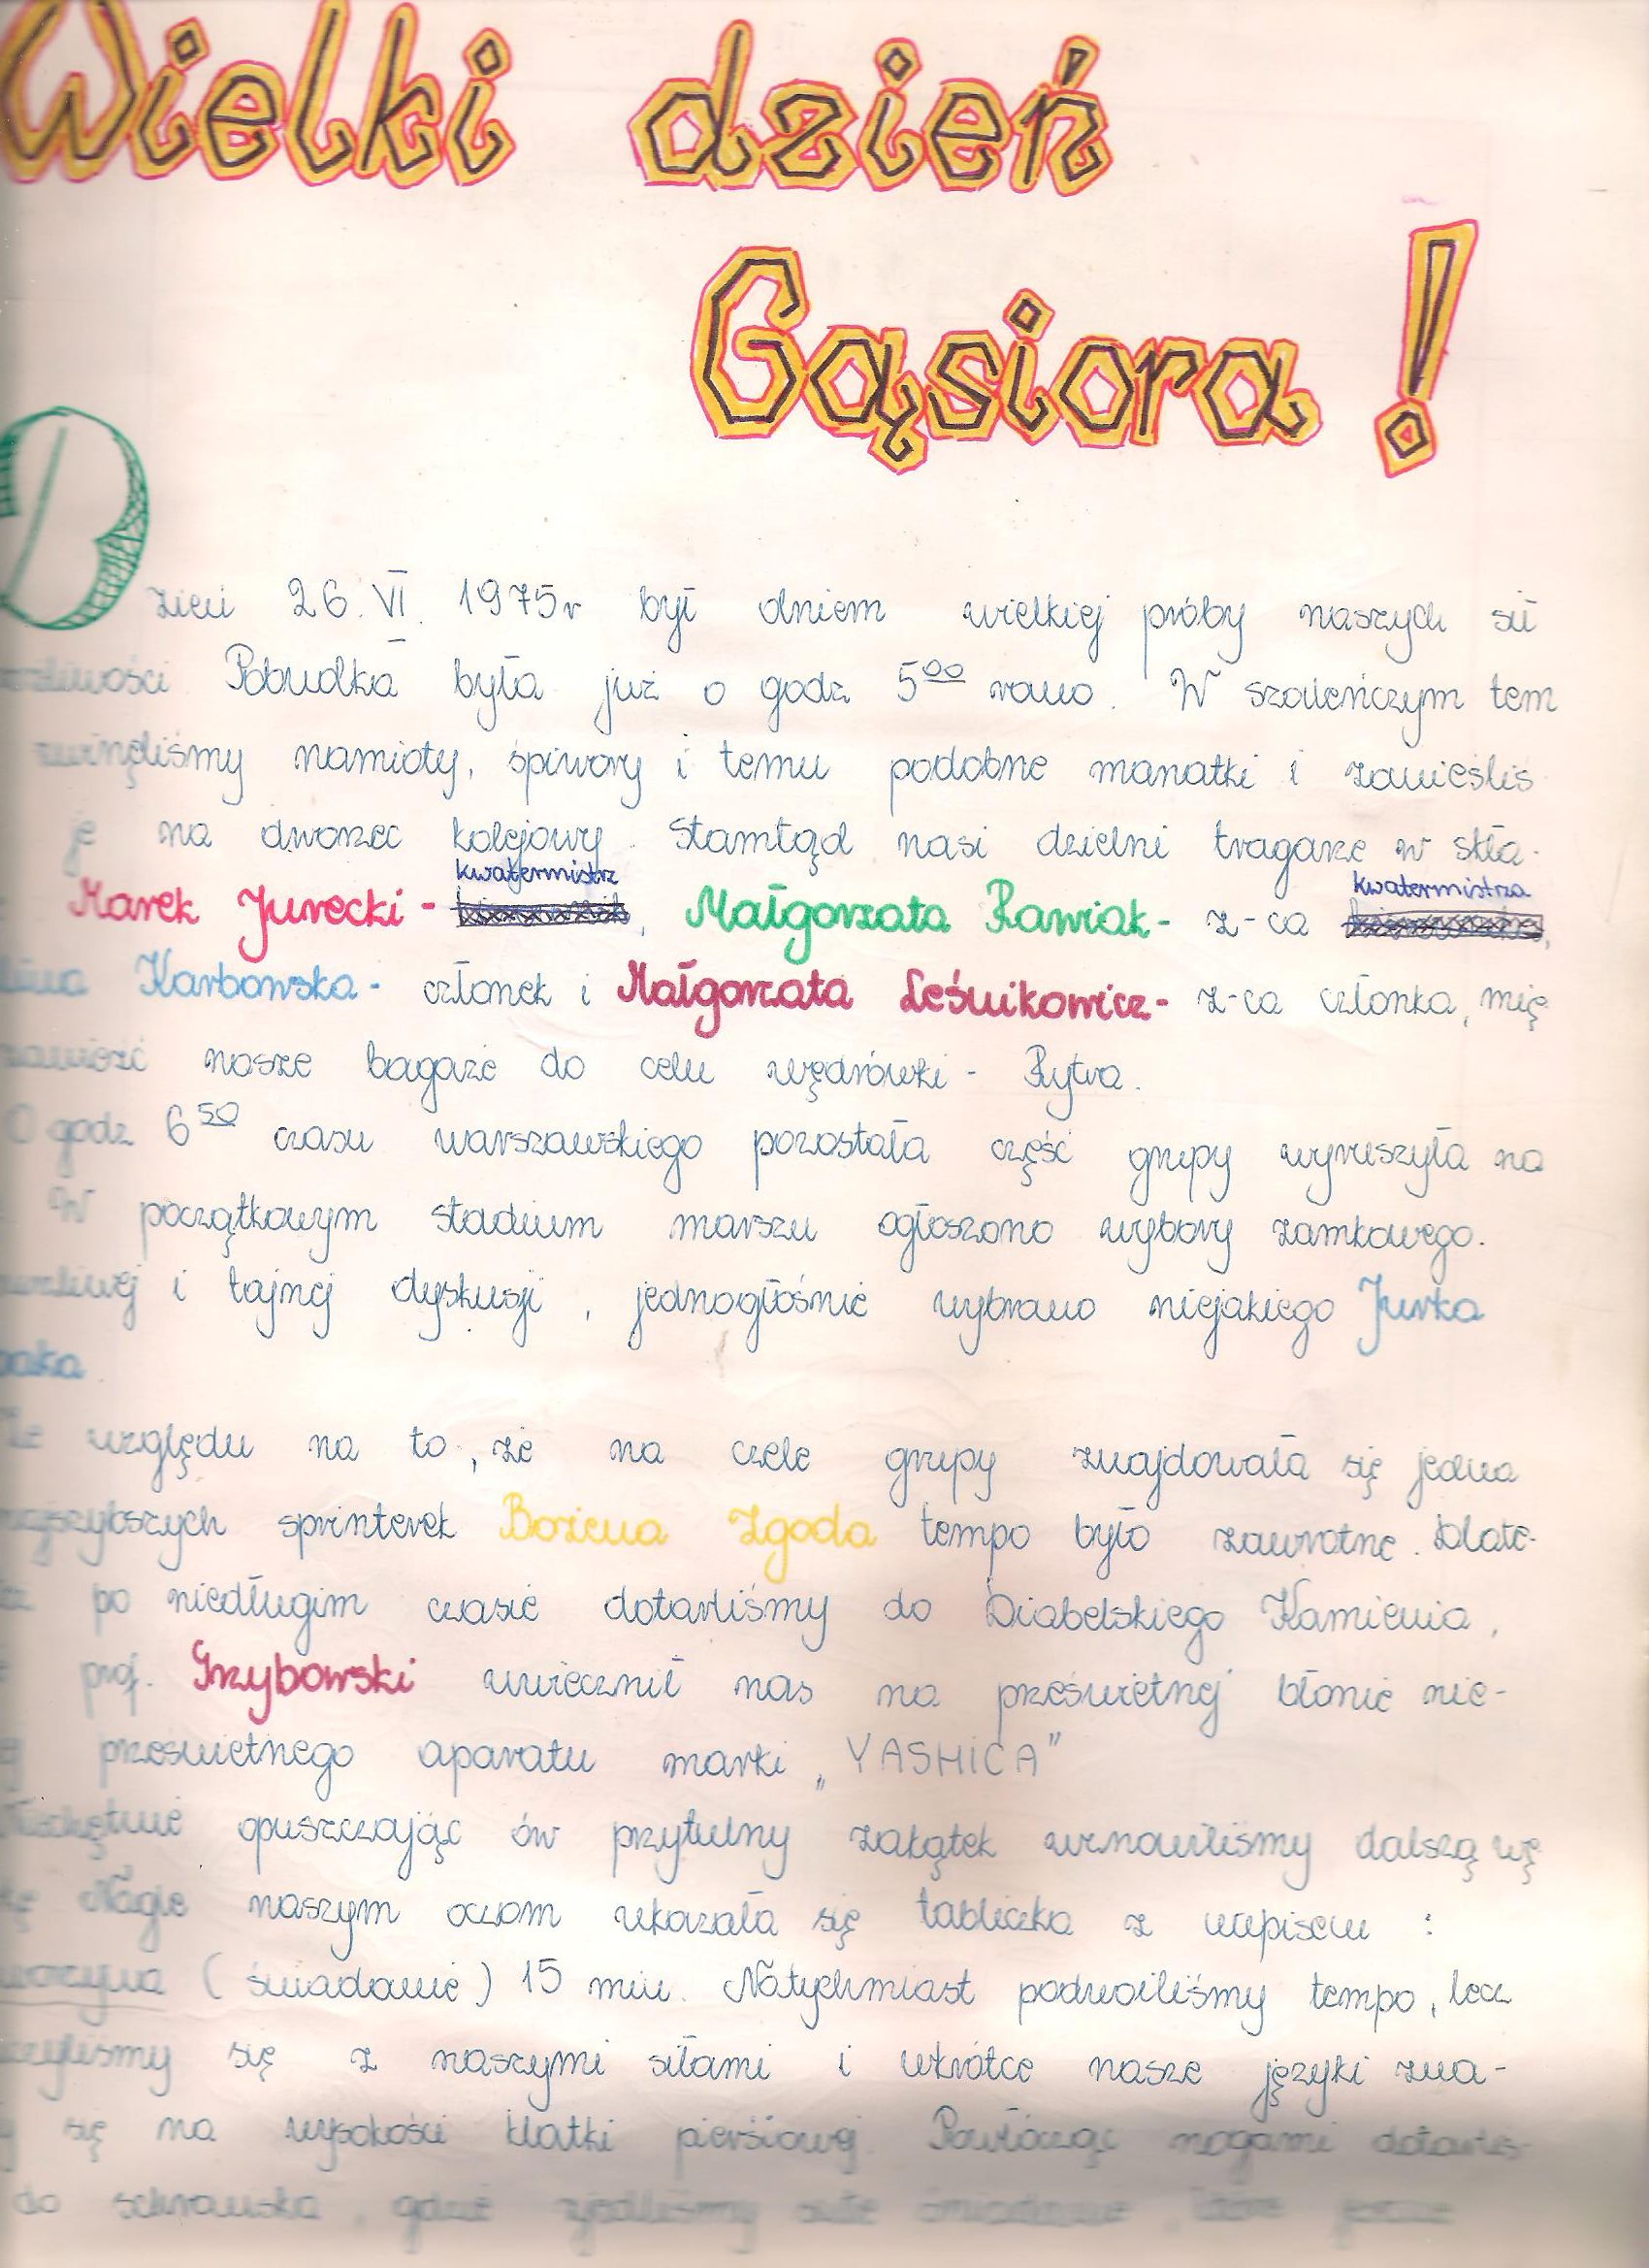 Wielki dzień
Gąsiora!
Dzień 26.VI.1975r był dniem wielkiej próby naszych sił
Pobudka była już o godz 5⁰⁰ rano. W szaleńczym tem
zwinęliśmy namioty, śpiwory i temu podobne manatki i zanieśliś
je na dworzec kolejowy. Stamtąd nasi dzielni tragarze w skła-
kwatermistrz kwatermistrza
Marek Jurecki - , Małgorzata Rawiak - z-ca ,
Karbowska - członek i Małgorzata Leśnikowicz - z-ca członka, mię
zawieść nasze bagaże do celu wędrówki - Rytra.
O godz 6⁵⁰ czasu warszawskiego pozostała część grupy wyruszyła na
W początkowym stadium marszu ogłoszono wybory zamkowego.
i tajnej dyskusji, jednogłośnie wybrano niejakiego Jurka
Ze względu na to, że na czele grupy znajdowała się jedna
najszybszych sprinterek Bożena Zgoda tempo było zawrotne. Dlate-
po niedługim czasie dotarliśmy do Diabelskiego Kamienia,
prof. Grzybowski uwiecznił nas na prześwietnej błonie nie-
prześwietnego aparatu marki „YASHICA"
Niechętnie opuszczając ów przytulny zakątek wznowiliśmy dalszą wę
kę Nagle naszym oczom ukazała się tabliczka z napisem :
(śniadanie) 15 min. Natychmiast podwoiliśmy tempo, lecz
się z naszymi siłami i wkrótce nasze języki zna-
się na wysokości klatki piersiowej. Powłócząc nogami dotarliś-
do schroniska, gdzie zjedliśmy śniadanie, które jeszcze